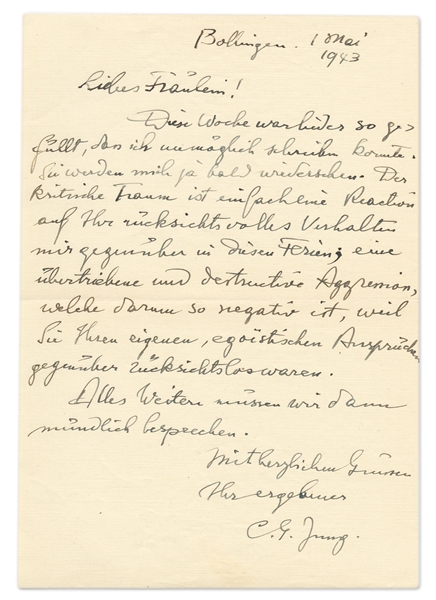 Bollingen. 1 Mai
1943
Liebes Fräulein!
Diese Woche war leider so ge-
füllt, dass ich unmöglich schreiben konnte.
Sie werden mich ja bald wiedersehen. Der
kritische Traum ist einfach eine Reaction
auf Ihr rücksichtsvolles Verhalten
mir gegenüber in diesen Ferien; eine
übertriebene und destructive Aggression,
welche darum so negativ ist, weil
Sie Ihren eigenen, egoistischen Ansprüchen
gegenüber rücksichtslos waren.
Alles Weitere müssen wir dann
mündlich besprechen.
Mit herzlichen Grüssen
Ihr ergebener
C. G. Jung.